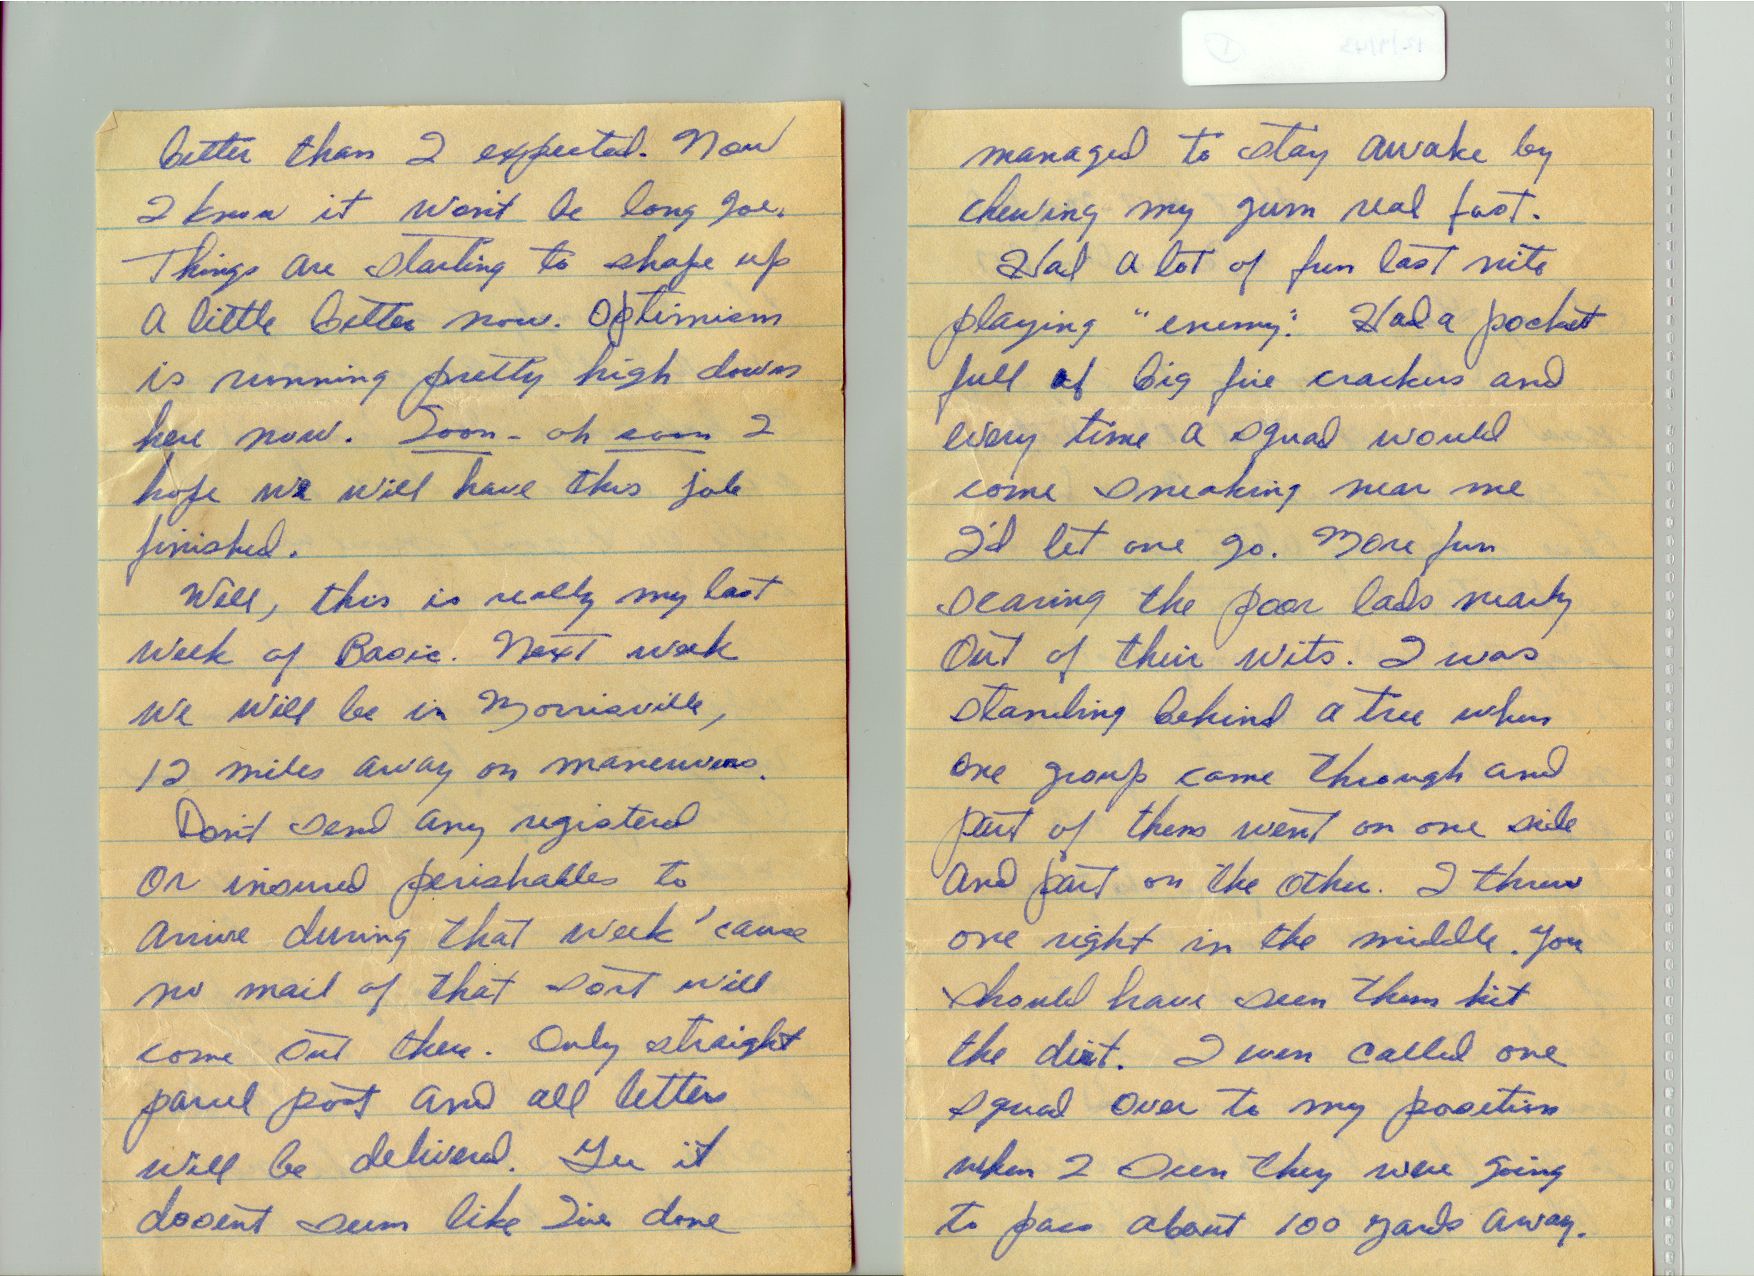 better than I expected. Now
I know it won't be long Joe.
Things are starting to shape up
a little better now. Optimism
is running pretty high down
here now. Soon - oh soon I
hope we will have this job
finished.
Well, this is really my last
week of Basic. Next week
we will be in Morrisville,
12 miles away on maneuvers.
Don't send any registered
or insured perishables to
arrive during that week 'cause
no mail of that sort will
come out there. Only straight
parcel post and all letters
will be delivered. Gee it
dosent seem like I've done
managed to stay awake by
chewing my gum real fast.
Had a lot of fun last nite
playing "enemy". Had a pocket
full of big fire crackers and
every time a squad would
come sneaking near me
I'd let one go. More fun
scaring the poor lads nearly
out of their wits. I was
standing behind a tree when
one group came through and
part of them went on one side
and part on the other. I threw
one right in the middle. You
should have seen them hit
the dirt. I even called one
squad over to my position
when I seen they were going
to pass about 100 yards away.